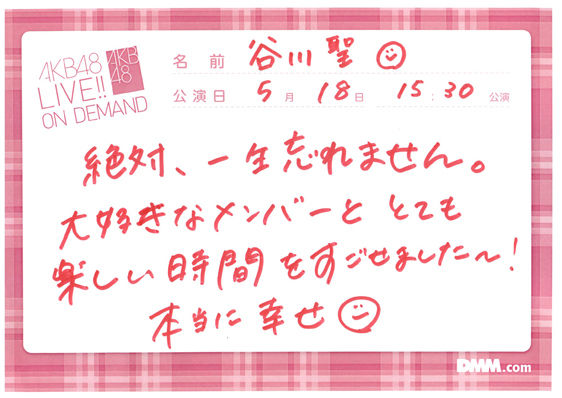 AKB48
LIVE!!
ON DEMAND
AKB
48
名前 谷川聖
公演日 5月18日 15:30公演
絶対、一生忘れません。
大好きなメンバーと とても
楽しい時間をすごせました〜!
本当に幸せ
DMM.com